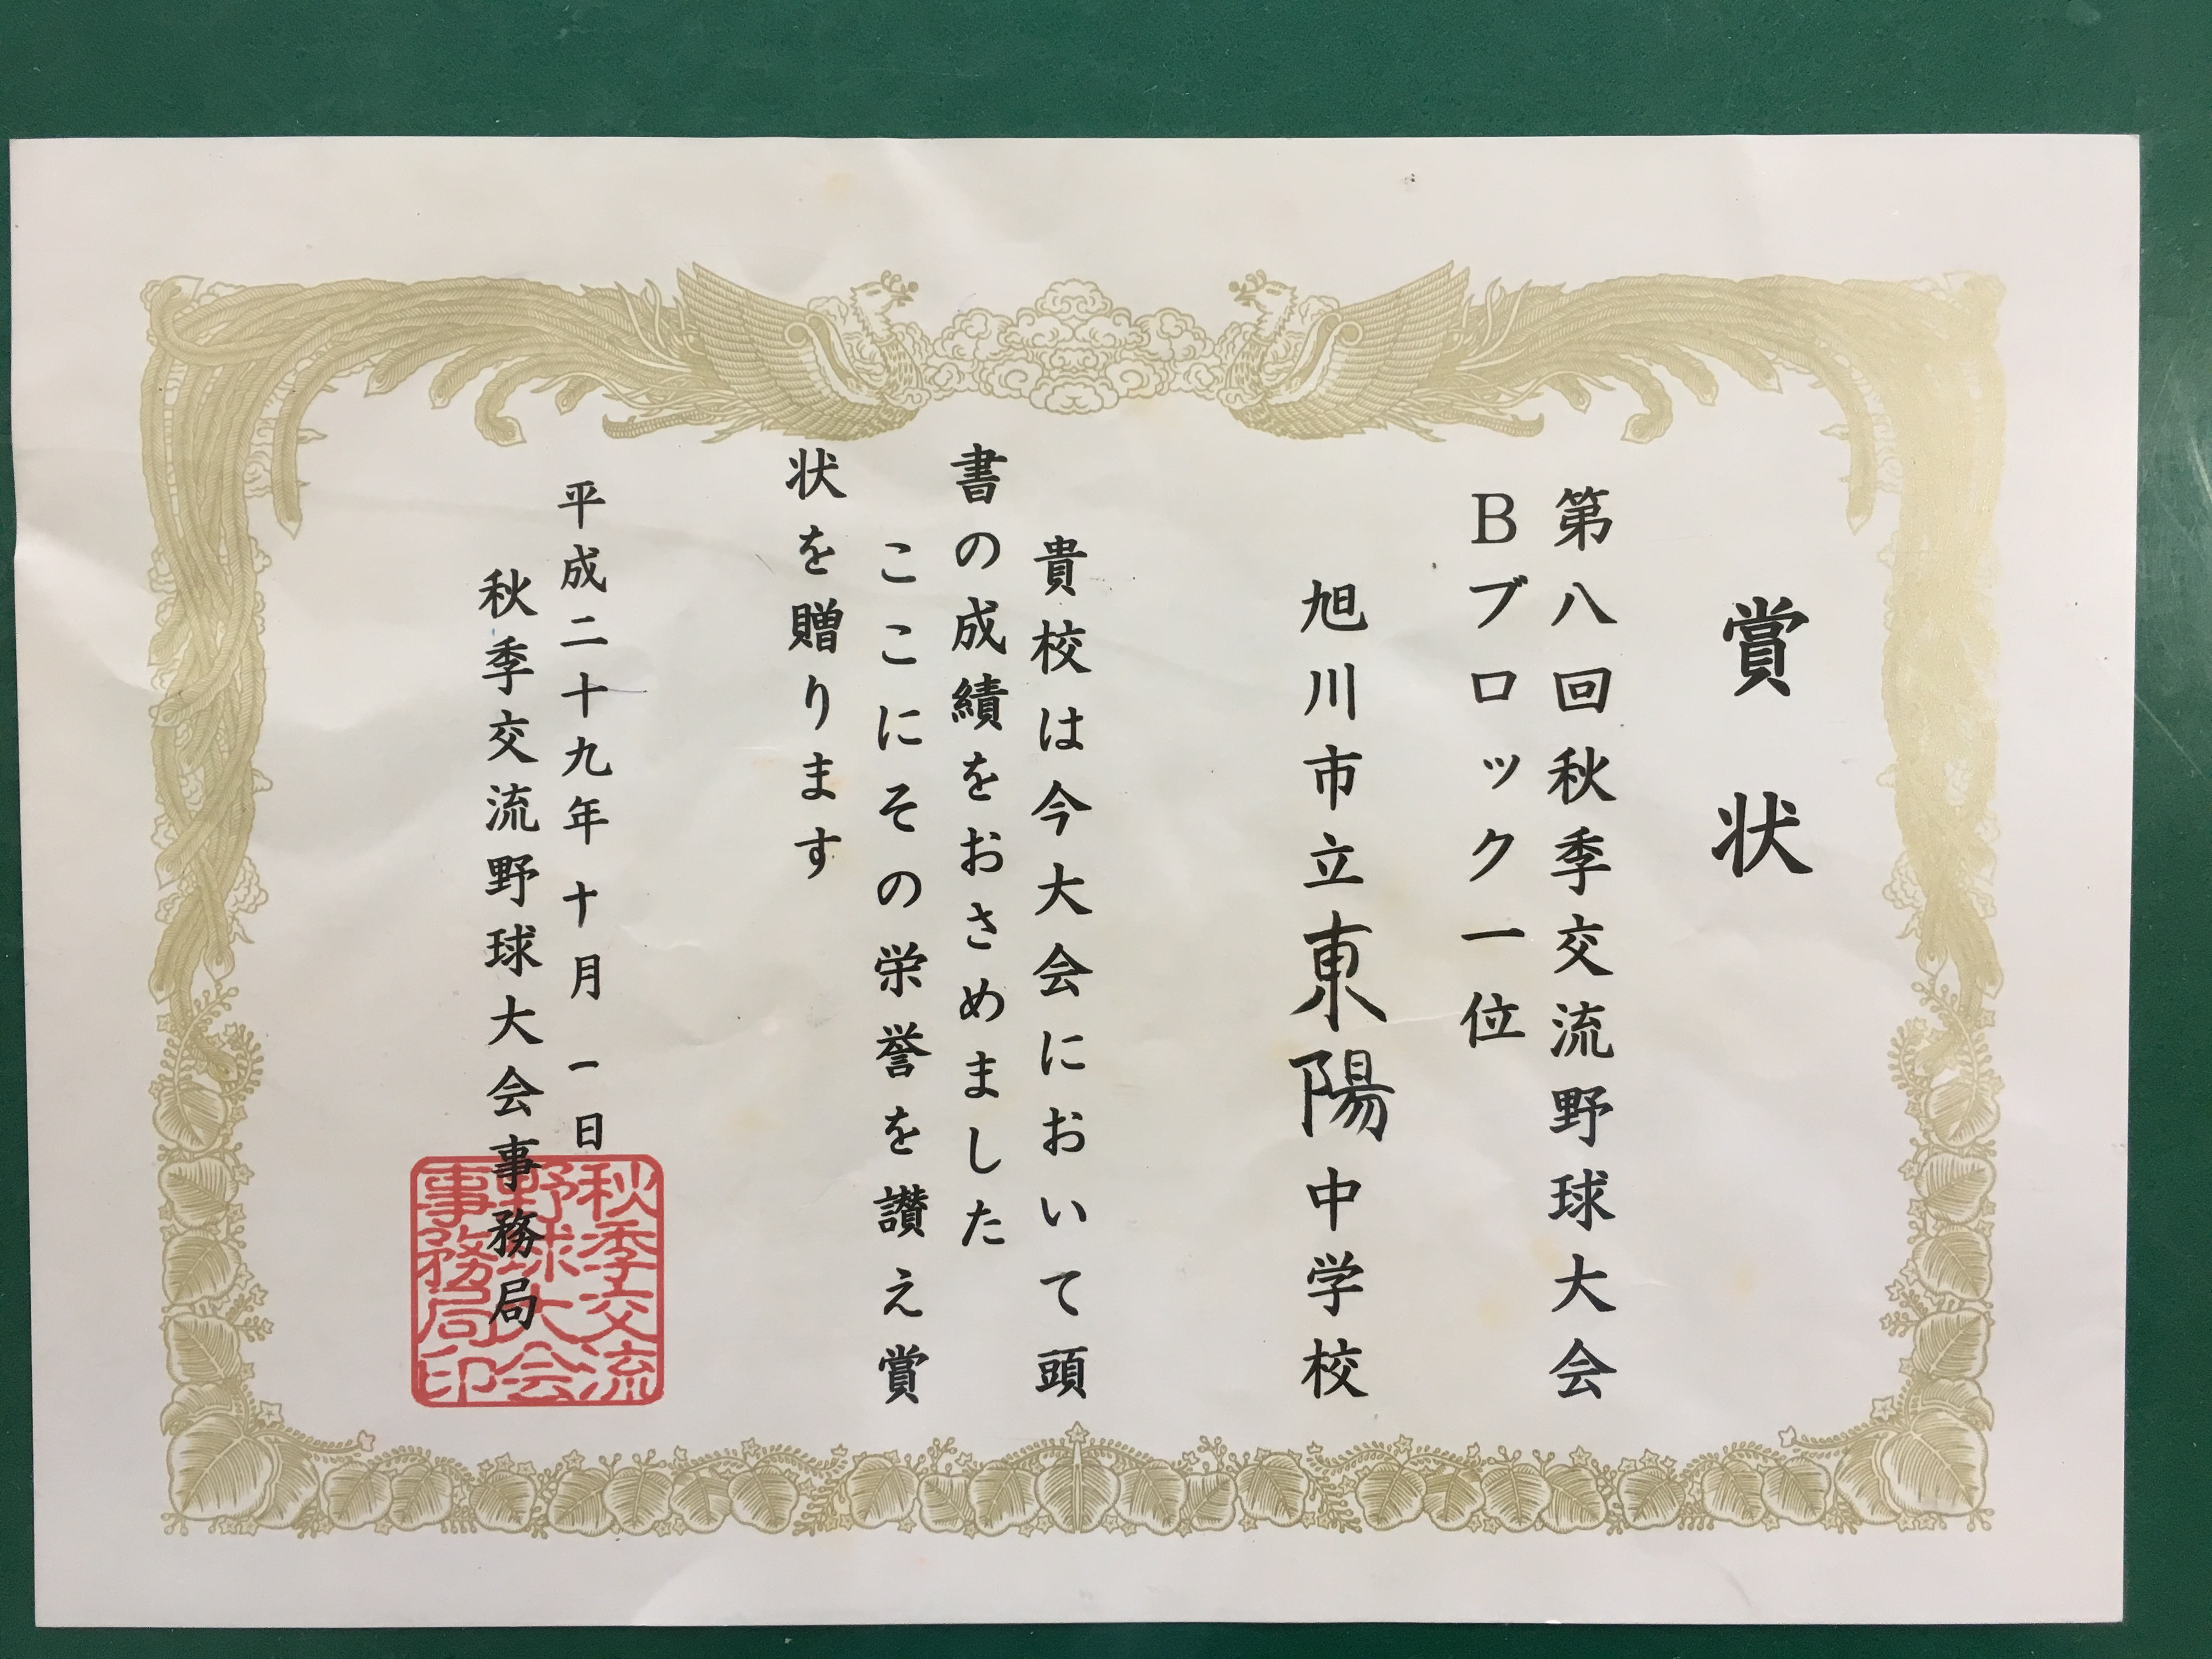 賞状
第八回秋季交流野球大会
Bブロック一位
旭川市立東陽中学校
貴校は今大会において頭
書の成績をおさめました
ここにその栄誉を讃え賞
状を贈ります
平成二十九年十月一日
秋季交流野球大会事務局
秋季交流
野球大会
事務局印